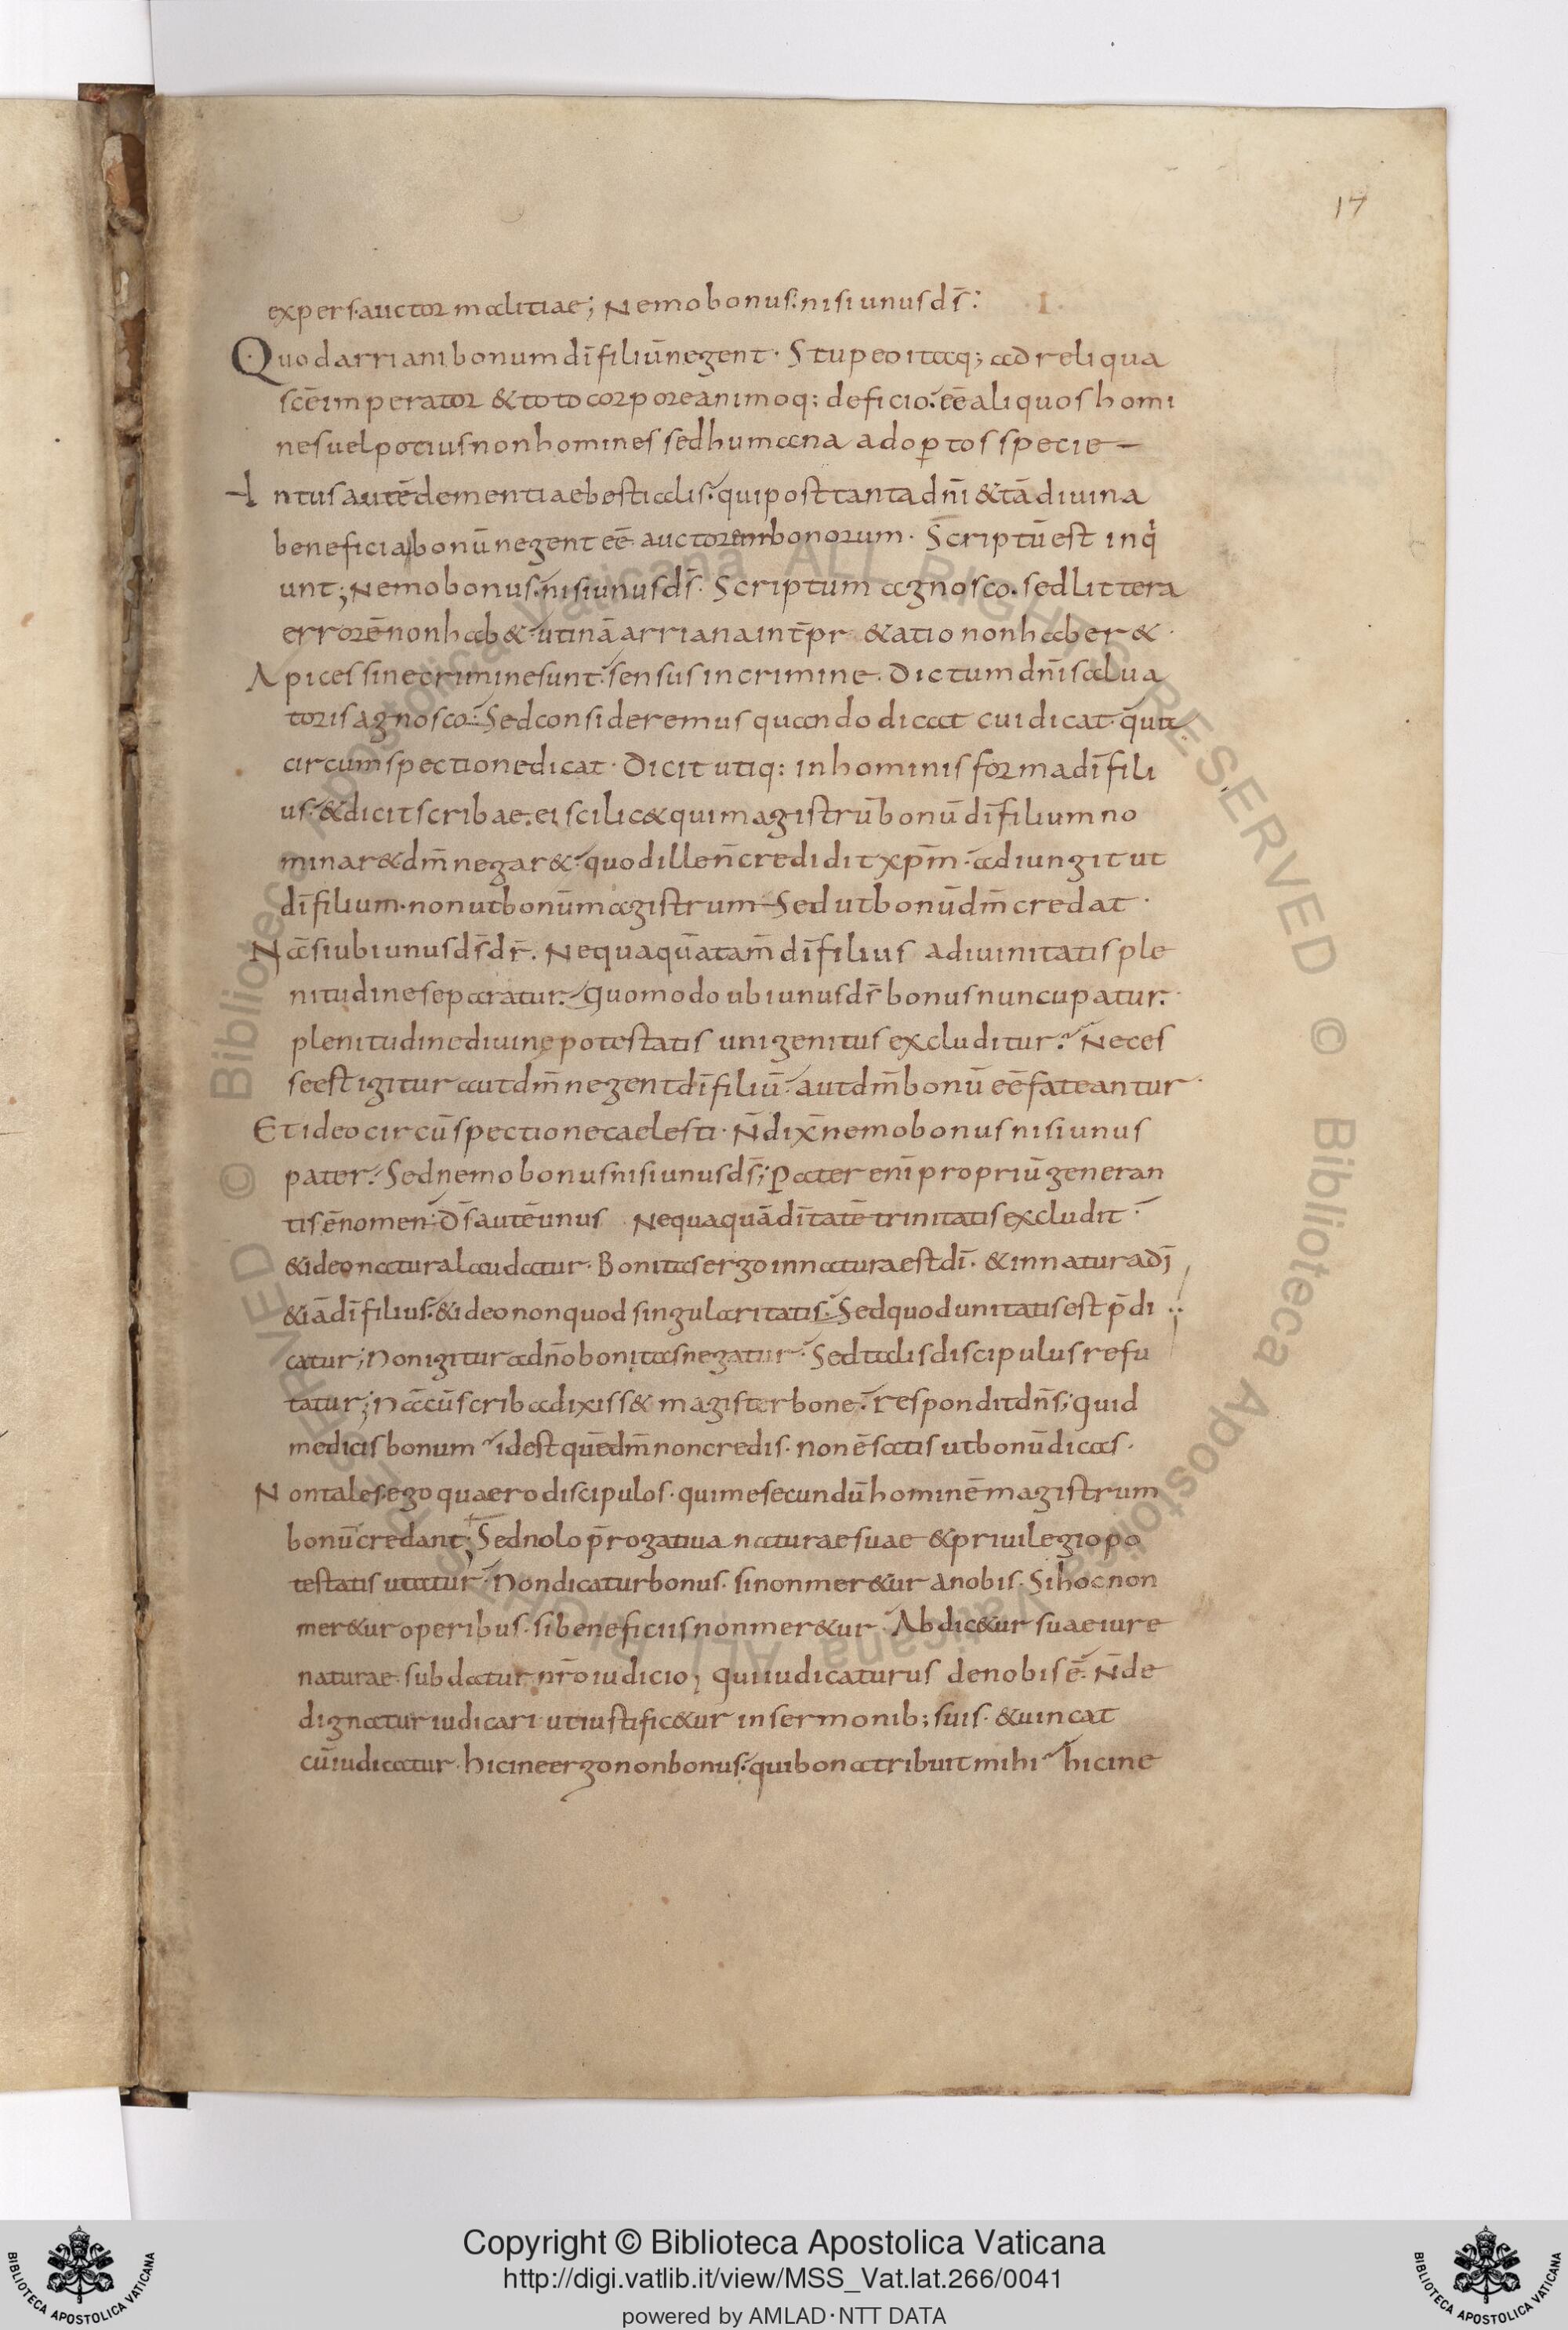 17
expers. auctor malitiae; Nemo bonus: nisi unus ds̄:  I.
Quod arriani bonum dī filiū negent · Stupeo itaq; ad reliqua
scē imperator & toto corpore animoq; deficio. eē aliquos homi
nes uel potius non homines sed humana adop̄tos specie —
Intus autē dementiae bestialis: qui post tanta dn̄i & tā diuina
beneficia bonū negent eē auctorem bonorum · Scriptū est inqi
unt; Nemo bonus. nisi unus ds̄ · Scriptum agnosco. sed littera
errorē non hab& utinā arriana int̄pr&atio non haber& ·
Apices sine crimine sunt: sensus in crimine. Dictum dn̄i salua
toris agnosco: Sed consideremus quando dicat cui dicat. qua
circumspectione dicat · Dicit utiq: in hominis forma dī fili
us. & dicit scribae. ei scilic& qui magistrū bonū dī filium no
minar& dm̄ negar& · quod ille n̄ credidit xp̄m · adiungit ut
dī filium. non ut bonūm agistrum Sed ut bonū dm̄ credat ·
Nā si ubi unus ds̄ dr̄. Nequaquā tam̄ dī filius a diuinitatis ple
nitudine separatur. Quomodo ubi unus ds̄ bonus nuncupatur.
plenitudine diuinę potestatis unigenitus excluditur? Neces
se est igitur aut dm̄ negent dī filiū. aut dm̄ bonū eē fateantur ·
Et ideo circū spectione caelesti · N̄ dix̄ nemo bonus nisi unus
pater. Sed nemo bonus nisi unus ds̄; Pater enī propriū generan
tis ē nomen: Ds̄ autē unus Nequaquā dītatē trinitatis excludit ·
& ideo natura laudatur · Bonitas ergo in natura est dī. & in natura dī
& iā dī filius: & ideo non quod singularitatis. Sed quod unitatis est p̄di
catur; Non igitur a dn̄o bonitas negatur · Sed talis discipulus refu
tatur; Nā cū scriba dixiss& magister bone. respondit dn̄s; Quid
me dicis bonum id est quē dm̄ non credis. non ē satis ut bonū dicas.
Non tales ego quaero discipulos · qui me secundū hominē magistrum
bonū credant; Sed nolo p̄rogatiua naturae suae & priuilegio po
testatis utatur. Non dicatur bonus. si non mer&ur a nobis. Si hoc non
mer&ur operibus. si beneficiis non mer&ur. Abdic&ur suae iure
naturae. subdatur nr̄o iudicio; qui iudicaturus de nobis ē. N̄ de
dignatur iudicari ut iustific&ur in sermonib; suis. & uincat
cū iudicatur. hicine ergo non bonus: qui bona tribuit mihi hicine
Copyright © Biblioteca Apostolica Vaticana
http://digi.vatlib.it/view/MSS_Vat.lat.266/0041
powered by AMLAD·NTT DATA
BIBLIOTECA APOSTOLICA VATICANA
BIBLIOTECA APOSTOLICA VATICANA
© Biblioteca Apostolica Vaticana ALL RIGHTS RESERVED © Biblioteca Apostolica Vaticana ALL RIGHTS RESERVED